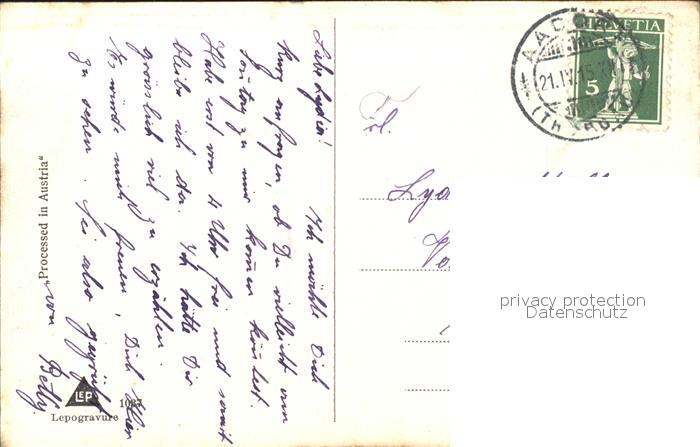 Liebe Lydia! Ich möchte Dich
kurz anfragen, ob Du vielleicht am
Sontag zu mir komen köntest.
Habe erst von 4 Uhr frei und somit
bleibe ich da. Ich hätte Dir
grässlich viel zu erzählen.
Es würde mich freuen, Dich hier
zu sehen. Sei also gegrüßt
von Betty.
„Processed in Austria“
LEP
Lepogravure
HELVETIA
5
AADORF
21.IV.15.XI
(THURGAU)
Frl.
Lydia
privacy protection
Datenschutz